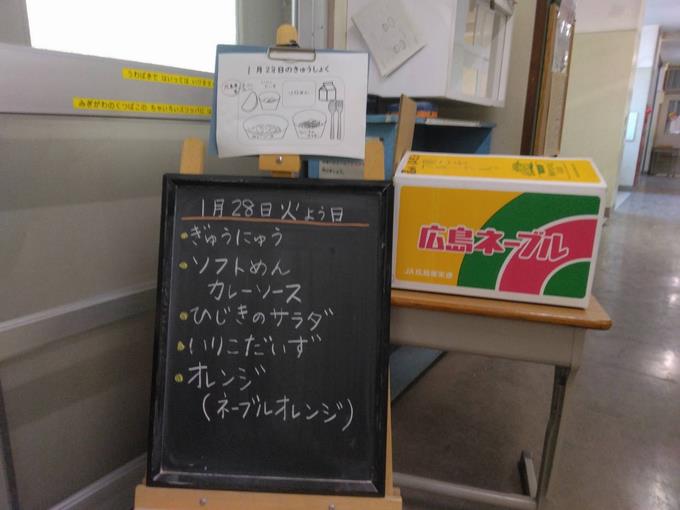 うわばきで はいっては いけませ
みぎがわのくつばこの ちゃいろいスリッパに は
1月28日のきゅうしょく
1月28日火よう日
ぎゅうにゅう
ソフトめん
カレーソース
ひじきのサラダ
いりこだいず
オレンジ
(ネーブルオレンジ)
広島ネーブル